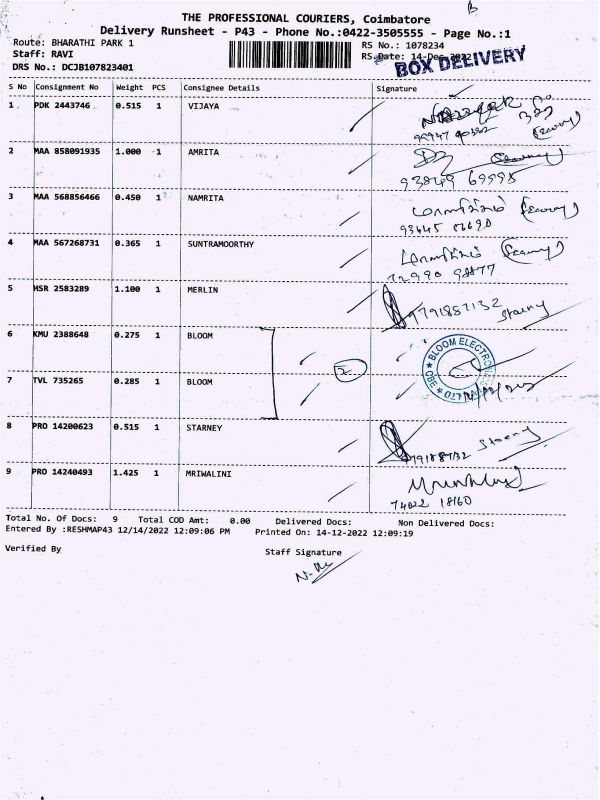 B
THE PROFESSIONAL COURIERS, Coimbatore
Delivery Runsheet - P43 - Phone No.:0422-3505555 - Page No.:1
Route: BHARATHI PARK 1 RS No.: 1078234
Staff: RAVI RS Date: 14-Dec-2022
DRS No.: DCJB107823401 BOX DELIVERY
S No Consignment No Weight PCS Consignee Details Signature
1 PDK 2443746 0.515 1 VIJAYA
2 MAA 858091935 1.000 1 AMRITA
93849 69995
3 MAA 568856466 0.450 1 NAMRITA
93445 06690
4 MAA 567268731 0.365 1 SUNTRAMOORTHY
72990 98877
5 HSR 2583289 1.100 1 MERLIN 9791887132 Starny
6 KMU 2388648 0.275 1 BLOOM BLOOM ELECTRO
2
7 TVL 735265 0.285 1 BLOOM
8 PRO 14200623 0.515 1 STARNEY Starny
9 PRO 14240493 1.425 1 MRIWALINI
74022 18160
Total No. Of Docs: 9 Total COD Amt: 0.00 Delivered Docs: Non Delivered Docs:
Entered By :RESHMAP43 12/14/2022 12:09:06 PM Printed On: 14-12-2022 12:09:19
Verified By Staff Signature